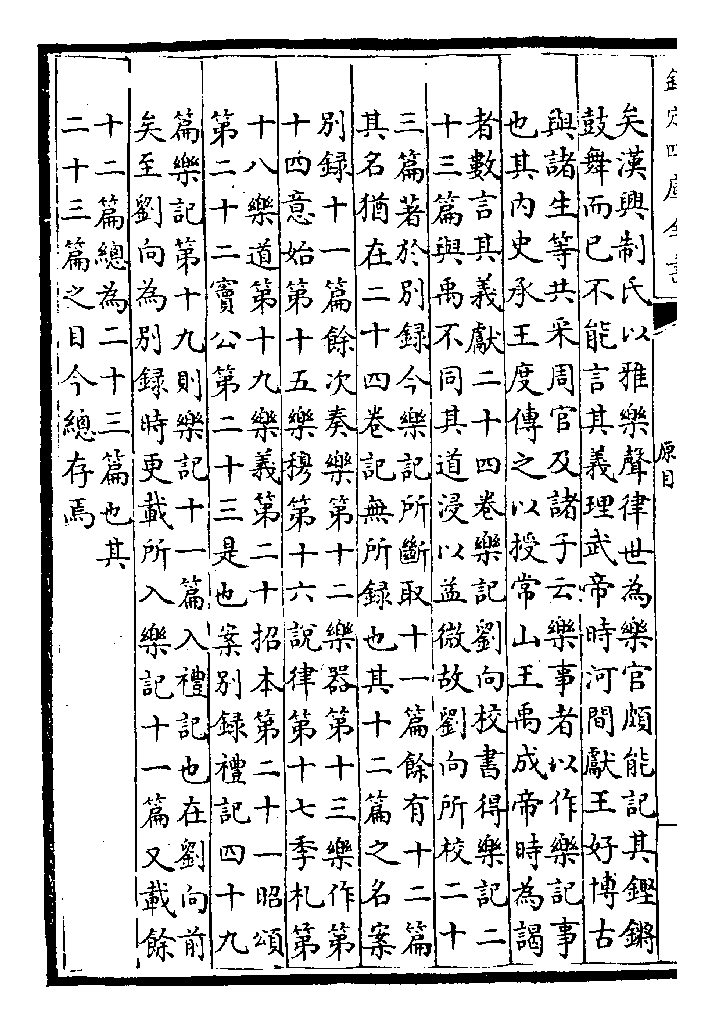 欽定四庫全書
原目
矣漢興制氏以雅樂聲律世為樂官頗能記其鏗鏘
鼓舞而已不能言其義理武帝時河間獻王好博古
與諸生等共采周官及諸子云樂事者以作樂記事
也其内史承王度傳之以授常山王禹成帝時為謁
者數言其義獻二十四卷樂記劉向校書得樂記二
十三篇與禹不同其道浸以益微故劉向所校二十
三篇著於別録今樂記所斷取十一篇餘有十二篇
其名猶在二十四卷記無所録也其十二篇之名案
別録十一篇餘次奏樂第十二樂器第十三樂作第
十四意始第十五樂穆第十六說律第十七季札第
十八樂道第十九樂義第二十招本第二十一昭頌
第二十二竇公第二十三是也案別録禮記四十九
篇樂記第十九則樂記十一篇入禮記也在劉向前
矣至劉向為別録時更載所入樂記十一篇又載餘
十二篇總為二十三篇也其
二十三篇之目今總存焉